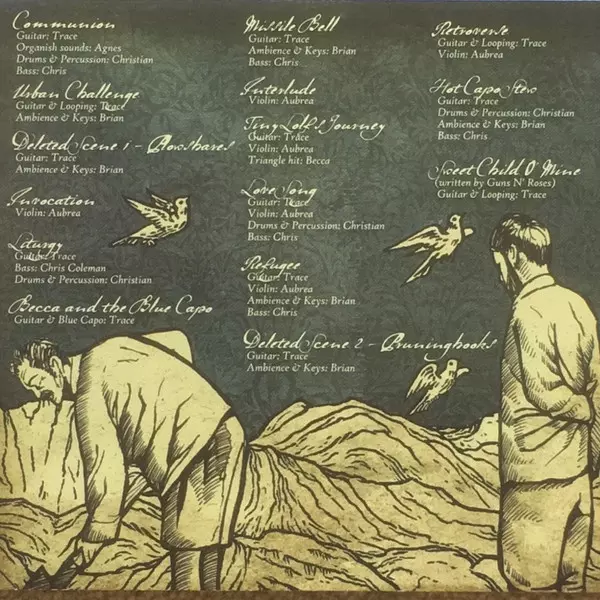 Communion
Guitar: Trace
Organish sounds: Agnes
Drums & Percussion: Christian
Bass: Chris
Urban Challenge
Guitar & Looping: Trace
Ambience & Keys: Brian
Deleted Scene 1 - Plowshares
Guitar: Trace
Ambience & Keys: Brian
Invocation
Violin: Aubrea
Liturgy
Guitar: Trace
Bass: Chris Coleman
Drums & Percussion: Christian
Becca and the Blue Capo
Guitar & Blue Capo: Trace
Missile Bell
Guitar: Trace
Ambience & Keys: Brian
Bass: Chris
Interlude
Violin: Aubrea
Tiny Lolk's Journey
Guitar: Trace
Violin: Aubrea
Triangle hit: Becca
Love Song
Guitar: Trace
Violin: Aubrea
Drums & Percussion: Christian
Bass: Chris
Refugee
Guitar: Trace
Violin: Aubrea
Ambience & Keys: Brian
Bass: Chris
Deleted Scene 2 - Pruninghooks
Guitar: Trace
Ambience & Keys: Brian
Retroverse
Guitar & Looping: Trace
Hot Capo Stew
Guitar: Trace
Drums & Percussion: Christian
Ambience & Keys: Brian
Bass: Chris
Sweet Child O' Mine
(written by Guns N' Roses)
Guitar & Looping: Trace